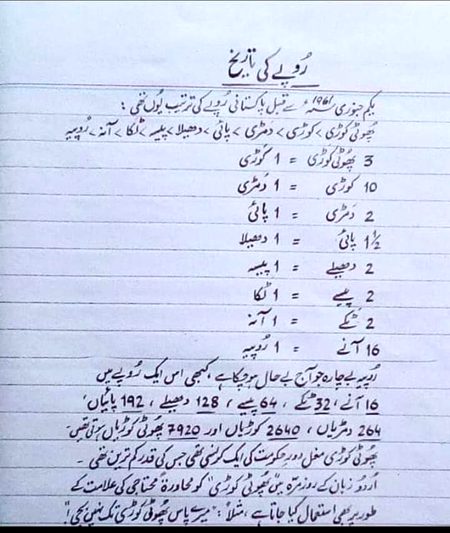 رُوپے کی تاریخ
یکم جنوری 1961ء سے قبل پاکستانی رُوپے کی ترتیب یُوں تھی :
پھُوٹی کوڑی > کوڑی > دمڑی > پائی > دھیلا > پیسہ > ٹکا > آنہ > رُوپیہ
3 پھُوٹی کوڑی = 1 کوڑی
10 کوڑی = 1 دَمڑی
2 دَمڑی = 1 پائی
1½ پائی = 1 دھیلا
2 دھیلے = 1 پیسہ
2 پیسے = 1 ٹکا
2 ٹکے = 1 آنہ
16 آنے = 1 رُوپیہ
رُوپیہ بے چارہ جو آج بے حال ہو چکا ہے ، کبھی اس ایک رُوپے میں
16 آنے ، 32 ٹکے ، 64 پیسے ، 128 دھیلے ، 192 پائیاں ،
264 دمڑیاں ، 2640 کوڑیاں اور 7920 پھوٹی کوڑیاں ہوتی تھیں۔
پھُوٹی کوڑی مغل دورِ حکومت کی ایک کرنسی تھی جس کی قدر کم ترین تھی ۔
اُردُو زبان کے روزمرہ میں "پھُوٹی کوڑی" کو محاورۃً محتاجی کی علامت کے
طور پر بھی استعمال کیا جاتا ہے ، مثلاً : "میرے پاس پھُوٹی کوڑی تک نہیں بچی" !